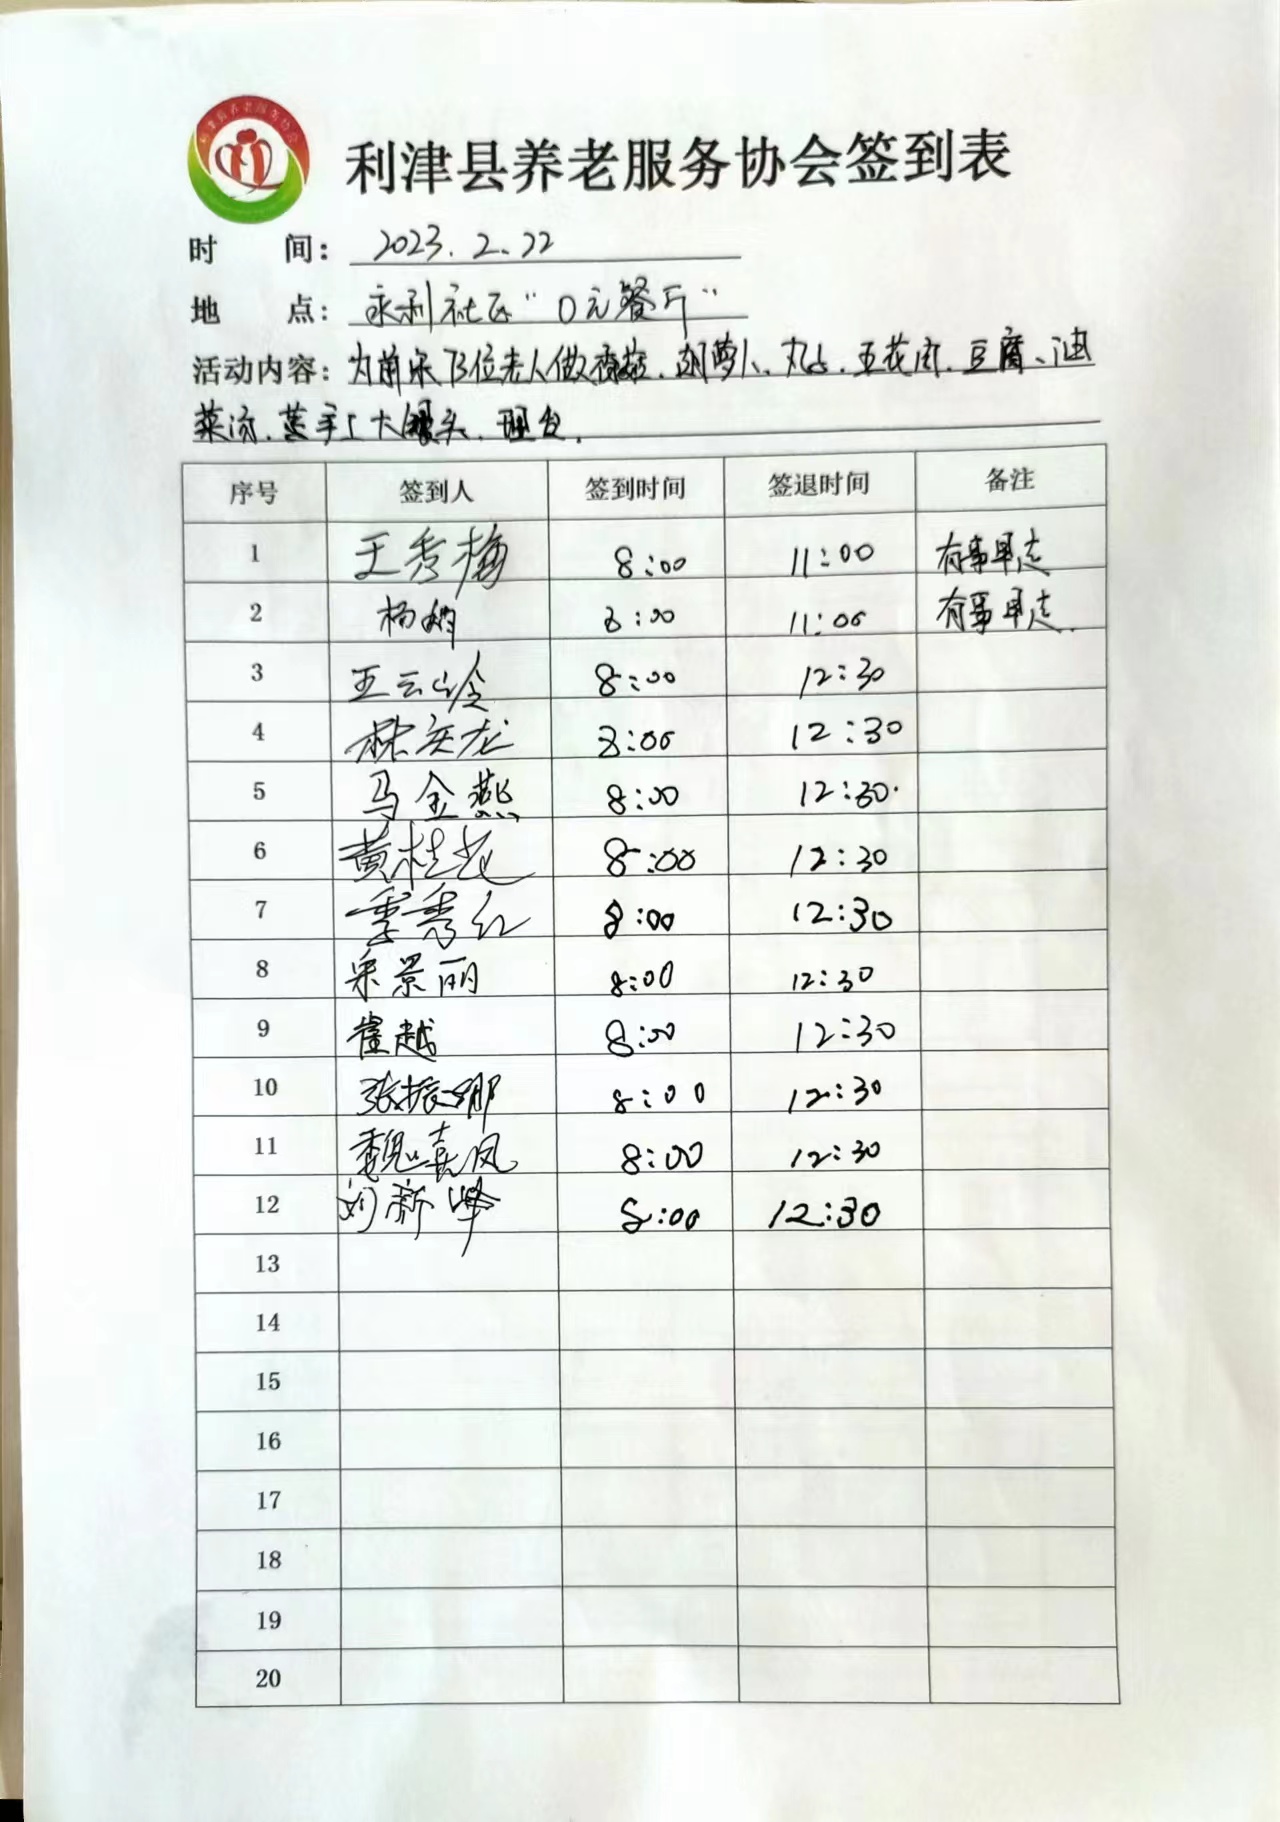 利津县养老服务协会
利津县养老服务协会签到表
时 间: 2023.2.22
地 点: 永利社区“0元餐厅”
活动内容: 为前来73位老人做香菇、胡萝卜、丸子、五花肉、豆腐、油
菜汤、蒸手工大馒头、理发.
序号 签到人 签到时间 签退时间 备注
1 王秀梅 8:00 11:00 有事早走
2 杨娟 8:00 11:00 有事早走.
3 王云岭 8:00 12:30
4 8:00 12:30
5 马金燕 8:00 12:30.
6 黄桂花 8:00 12:30
7 季秀红 8:00 12:30
8 宋景丽 8:00 12:30
9 崔越 8:00 12:30
10 张振娜 8:00 12:30
11 魏喜凤 8:00 12:30
12 刘新峰 8:00 12:30
13
14
15
16
17
18
19
20